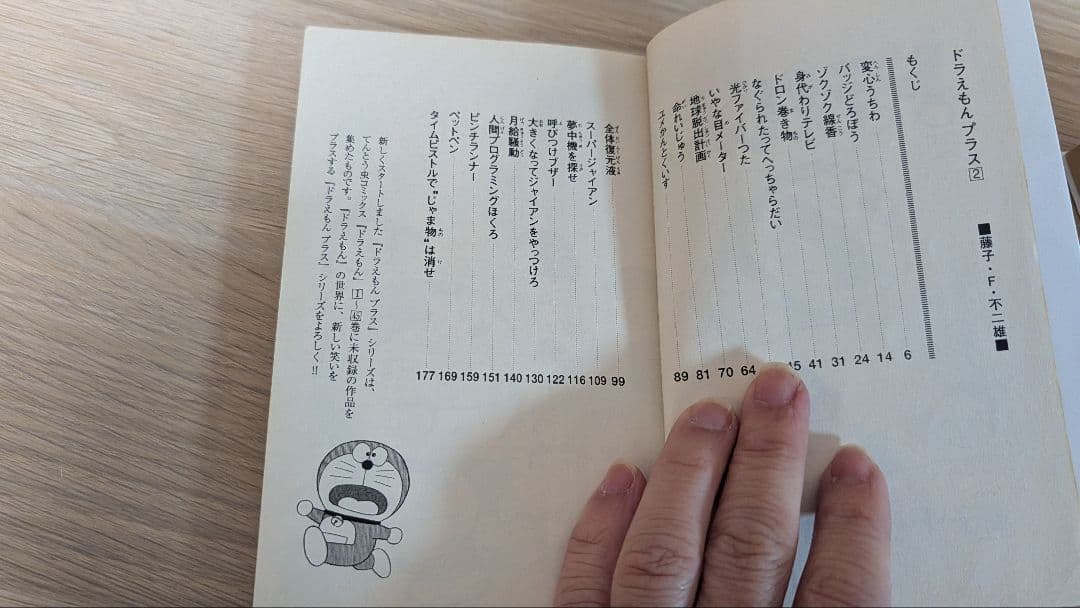 ドラえもん プラス 2
■藤子・F・不二雄■
もくじ
変心うちわ 6
バッジどろぼう 14
ゾクゾク線香 24
身代わりテレビ 31
ドロン巻き物 41
なぐられたってへっちゃらだい
光ファイバーつた
いやな目メーター 64
地球脱出計画 70
命れいじゅう 81
ユメかんとくいす 89
全体復元液 99
スーパージャイアン 109
夢中機を探せ 116
呼びつけブザー 122
大きくなってジャイアンをやっつけろ 130
月給騒動 140
人間プログラミングほくろ 151
ピンチランナー 159
ペットペン 169
タイムピストルで“じゃま物”は消せ 177
新しくスタートしました『ドラえもん プラス』シリーズは、
てんとう虫コミックス『ドラえもん』1〜45巻に未収録の作品を
集めたものです。『ドラえもん』の世界に、新しい笑いを
プラスする『ドラえもん プラス』シリーズをよろしく!!